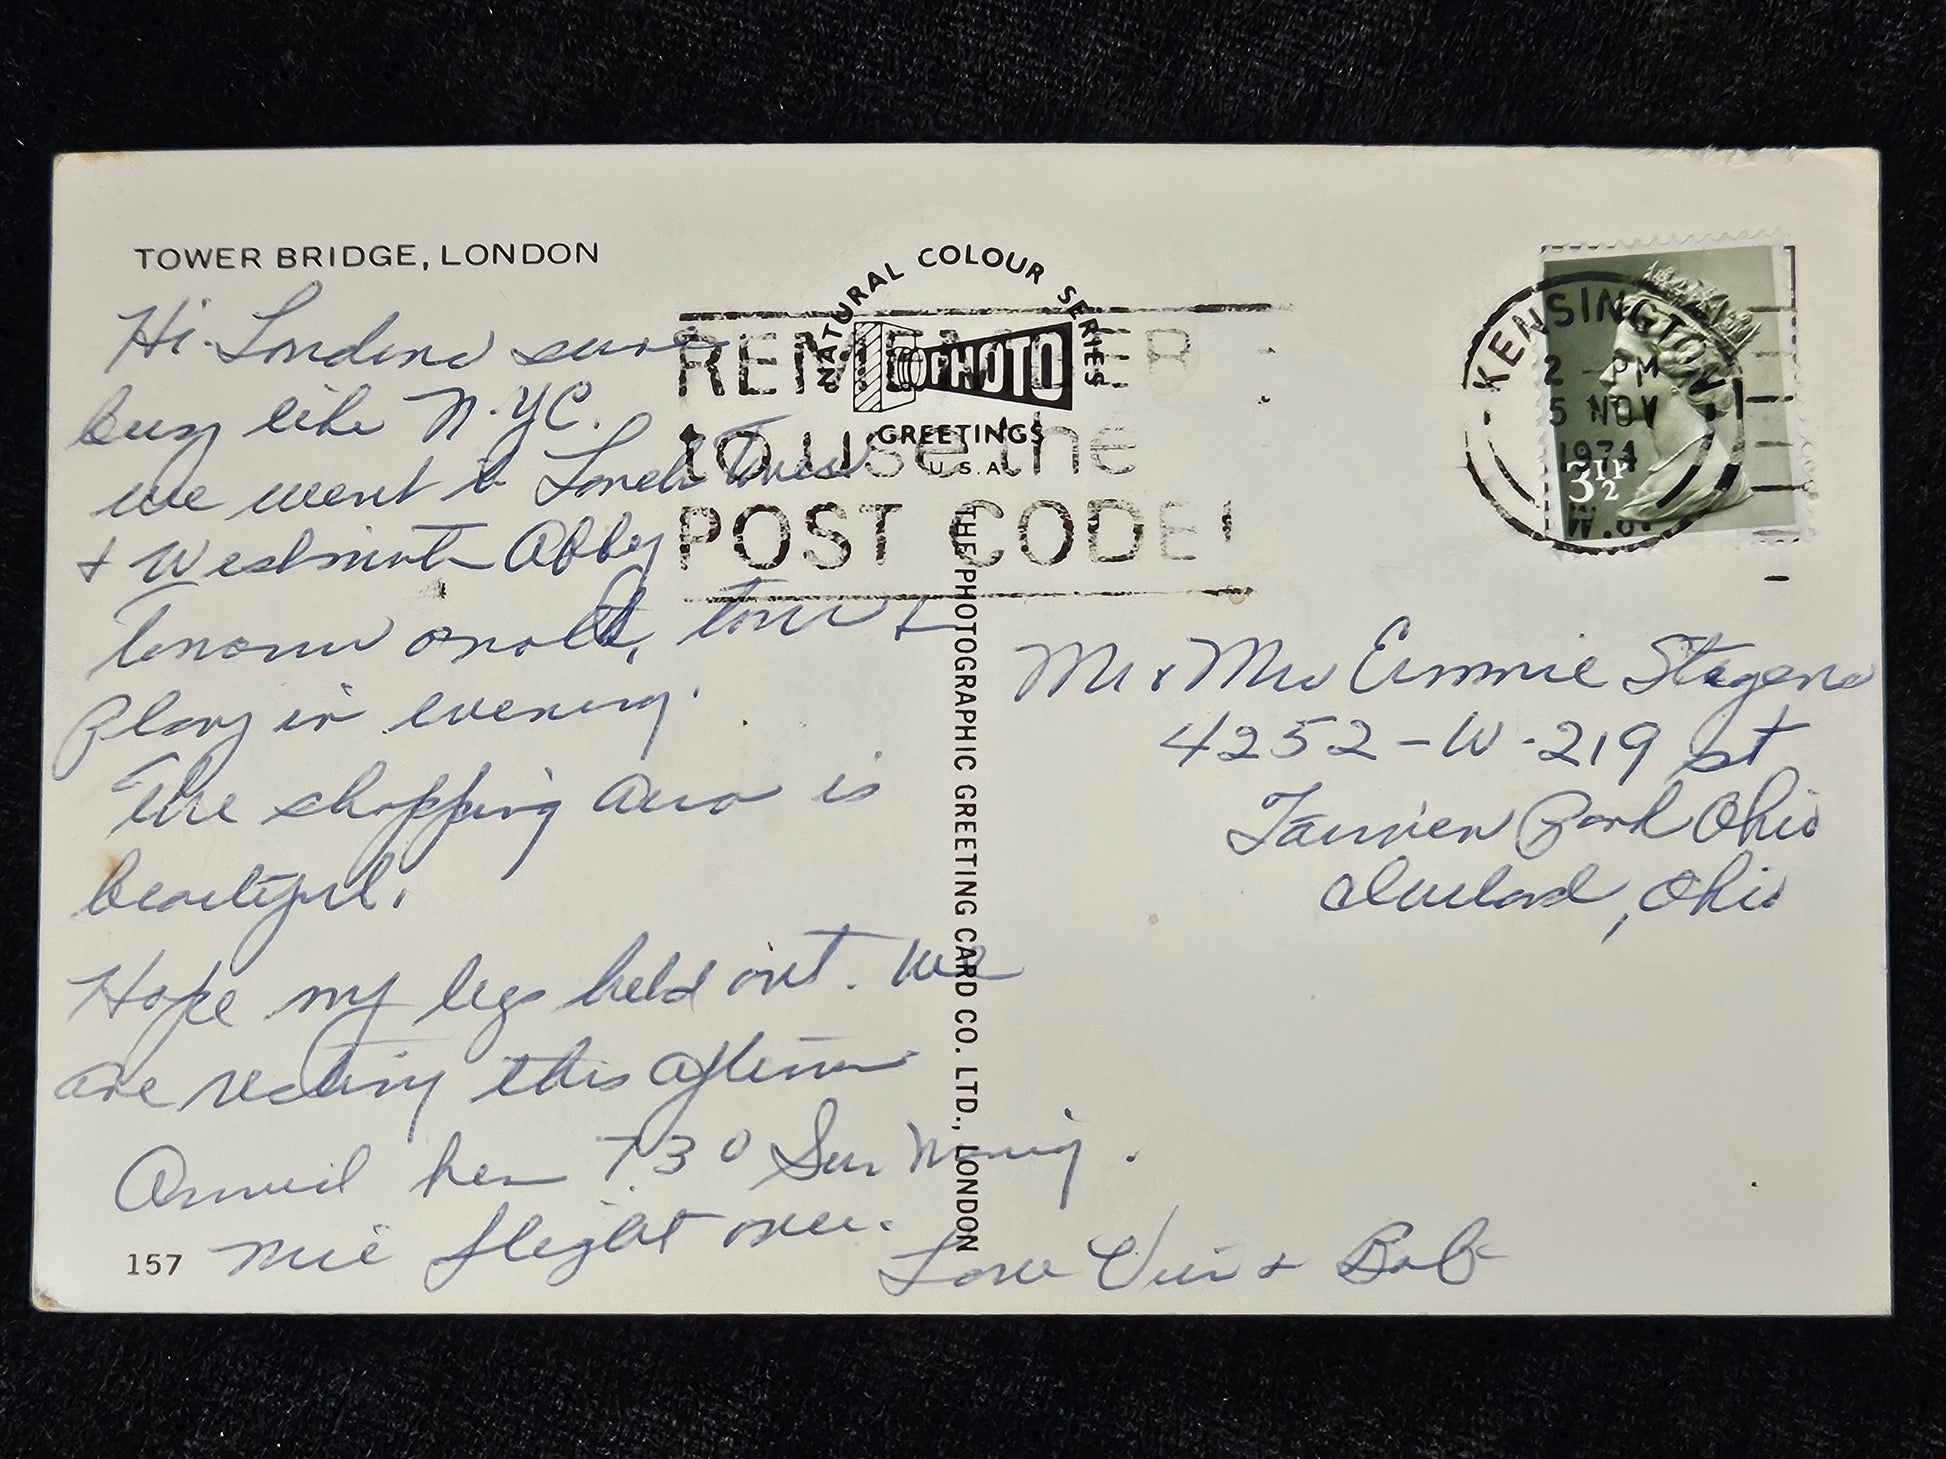 TOWER BRIDGE, LONDON
Hi - London sure
busy like N.Y.C.
we went to London Tower
& Westminster Abby
Tomorrow another tour &
Play in evening.
The shopping area is
beautiful.
Hope my legs held out. We
are resting this afternoon
Arrived here 730 Sun Morning.
157
Nice flight over.
Love & Bob
NATURAL COLOUR SERIES
PHOTO
GREETINGS
U.S.A.
REMEMBER
to use the
POST CODE!
THE PHOTOGRAPHIC GREETING CARD CO. LTD., LONDON
KENSINGTON
2 - PM
5 NOV
1974
W.8.
3½P
Mr & Mrs Ermmie Stagens
4252 - W - 219 st
Fairview Park Ohio
Cleveland, Ohio